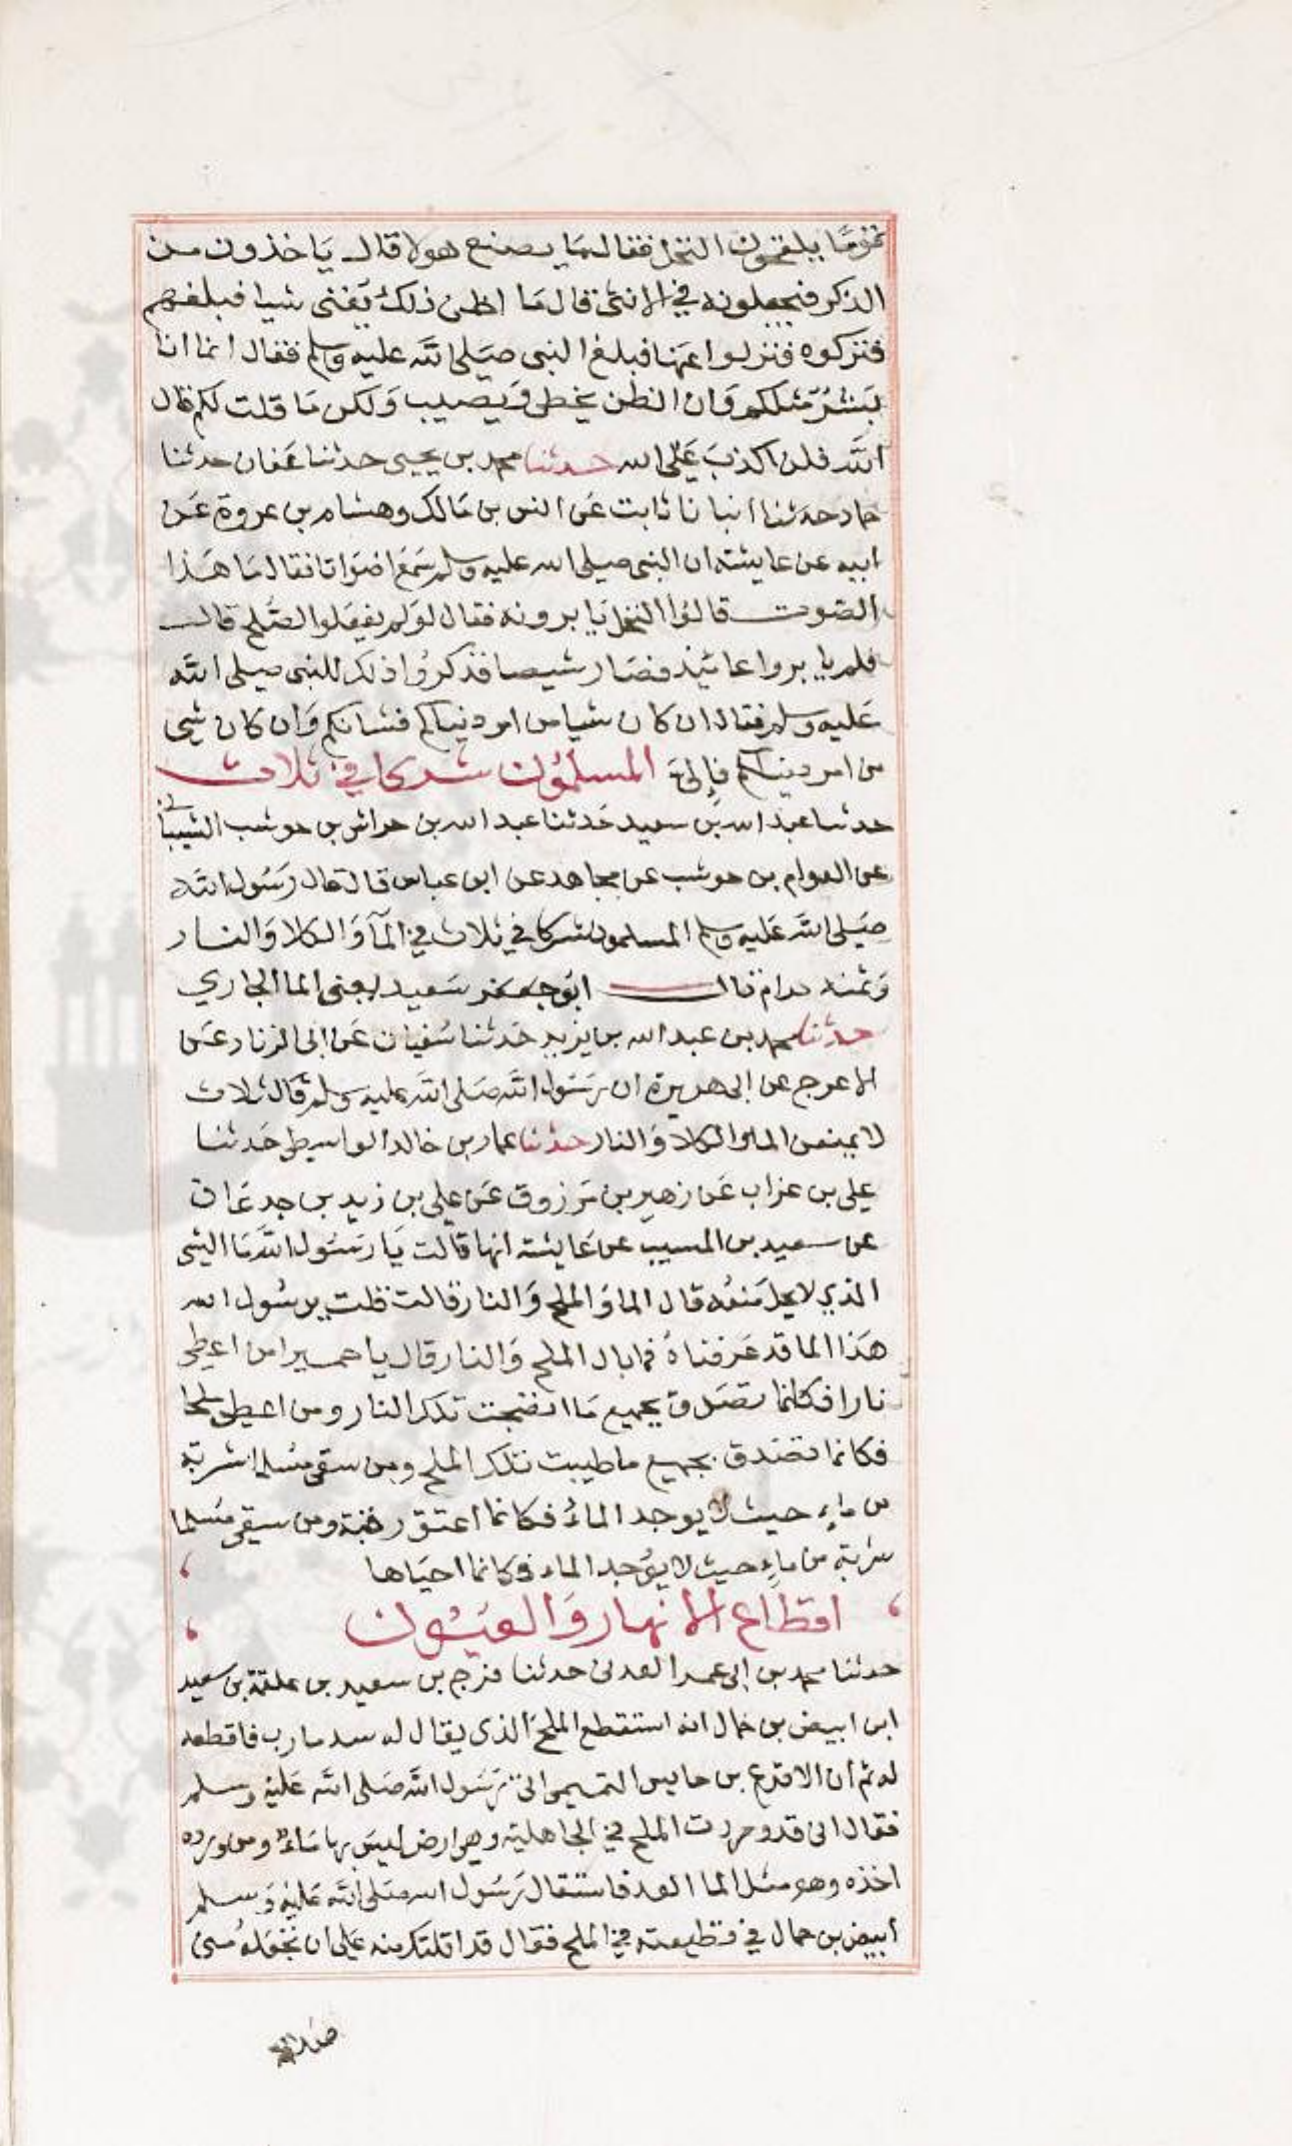 قوما يلقحون النخل فقال ما يصنع هولا قال ياخذون من
الذكر فيجعلونه في الانثى قال ما اظن ذلك يغنى شيا فبلغهم
فتركوه فنزلوا عنها فبلغ النبى صلى الله عليه وسلم فقال انما انا
بشر مثلكم وان الظن يخطى ويصيب ولكن ما قلت لكم قال
الله فلن اكذب على الله حدثنا محمد بن يحيى حدثنا عفان حدثنا
حماد حدثنا انبانا ثابت عن انس بن مالك وهشام بن عروة عن
ابيه عن عايشة ان النبى صلى الله عليه وسلم سمع اصواتا فقال ما هذا
الصوت قالوا النخل يابرونه فقال لو لم يفعلوا لصلح قالت
فلم يابروا عائيذ فصار شيصا فذكروا ذلك للنبى صلى الله
عليه وسلم فقال ان كان شيا من امر دنياكم فشانكم وان كان شى
من امر دينكم فإلىّ المسلمون شركا في ثلاث
حدثنا عبد الله بن سعيد حدثنا عبد الله بن خراش بن حوشب الشيبانى
عن العوام بن حوشب عن مجاهد عن ابن عباس قال قال رسول الله
صلى الله عليه وسلم المسلمون شركا في ثلاث في المآ والكلا والنار
وثمنه حرام قال ابو جعفر سعيد يعنى الما الجاري
حدثنا محمد بن عبد الله بن يزيد حدثنا سفيان عن ابى الزناد عن
الاعرج عن ابى هريرة ان رسول الله صلى الله عليه وسلم قال ثلاث
لا يمنعن الما والكلا والنار حدثنا عمار بن خالد الواسطى حدثنا
على بن غراب عن زهير بن مرزوق عن على بن زيد بن جدعان
عن سعيد بن المسيب عن عايشة انها قالت يا رسول الله ما الشى
الذي لا يحل منعه قال الما والملح والنار قالت قلت يرسول الله
هذا الما قد عرفناه فما بال الملح والنار قال يا حميرا من اعطى
نارا فكانما تصدق بجميع ما انضجت تلك النار ومن اعطى ملحا
فكانما تصدق بجميع ما طيبت تلك الملح ومن سقى مسلما شربة
من ماء حيث لا يوجد الماء فكانما اعتق رقبة ومن سقى مسلما
شربة من ماء حيث لا يوجد الماء فكانما احياها
اقطاع الانهار والعيون
حدثنا محمد بن ابى عمر العدنى حدثنا فرج بن سعيد بن علقمة بن سعيد
ابن ابيض بن حمال انه استقطع الملح الذى يقال له سد مارب فاقطعه
له ثم ان الاقرع بن حابس التميمى اتى رسول الله صلى الله عليه وسلم
فقال انى قد وردت الملح في الجاهلية وهو ارض ليس بها ماء ومن ورده
اخذه وهو مثل الما العد فاستقال رسول الله صلى الله عليه وسلم
ابيض بن حمال في قطيعته في الملح فقال قد اقلتك منه على ان تجعله منى